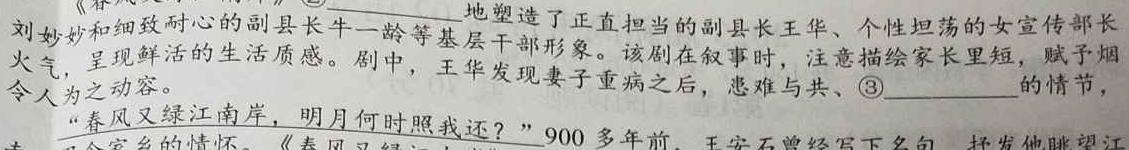 ②____________地塑造了正直担当的副县长王华、个性坦荡的女宣传部长
刘妙妙和细致耐心的副县长牛一龄等基层干部形象。该剧在叙事时，注意描绘家长里短，赋予烟
火气，呈现鲜活的生活质感。剧中，王华发现妻子重病之后，患难与共、③____________的情节，
令人为之动容。
“春风又绿江南岸，明月何时照我还？”900多年前，王安石曾经写下名句，抒发他眺望江
家乡的情怀。《春风又绿江